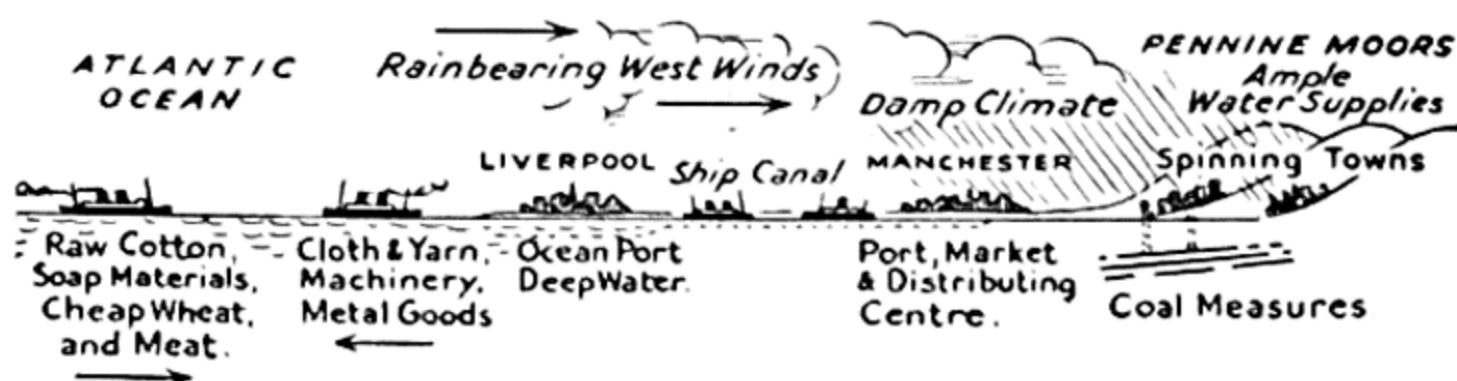 ATLANTIC
OCEAN
Rainbearing West Winds
Damp Climate
PENNINE MOORS
Ample
Water Supplies
LIVERPOOL
Ship Canal
MANCHESTER
Spinning Towns
Raw Cotton,
Soap Materials,
Cheap Wheat,
and Meat.
Cloth & Yarn,
Machinery,
Metal Goods
Ocean Port
Deep Water.
Port, Market
& Distributing
Centre.
Coal Measures